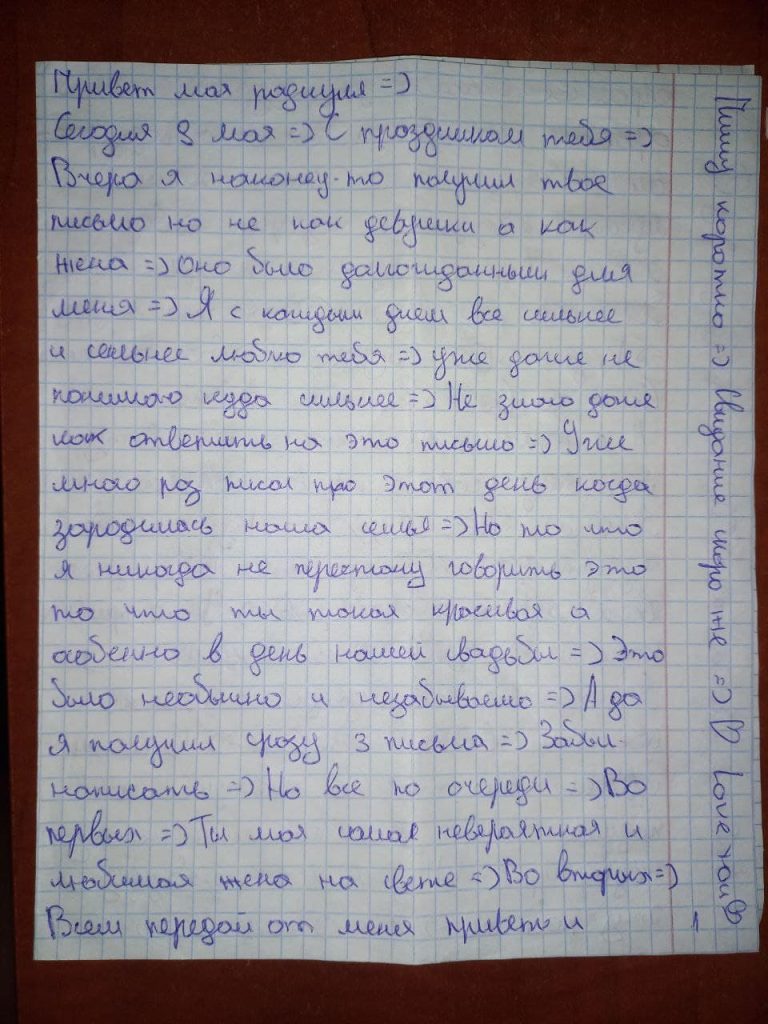 Привет моя родную =)
Сегодня 9 мая =) С праздником тебя =)
Вчера я наконец-то получил твое
письмо но не как девушки а как
жена =) Оно было долгожданным для
меня =) Я с каждым днем все сильнее
и сильнее люблю тебя =) уже даже не
понимаю куда сильнее =) Не знаю даже
как ответить на это письмо =) Уже
много раз писал про этот день когда
зародилась наша семья =) Но то что
я никогда не перестану говорить это
то что ты такая красивая а
особенно в день нашей свадьбы =) Это
было необычно и незабываемо =) А да
я получил сразу 3 письма =) Забыл
написать =) Но все по очереди =) Во
первых =) Ты моя самая невероятная и
любимая жена на свете =) Во вторых =)
Всем передай от меня приветы и
1
Пишу коротко =) Свидание скоро же =) Love you